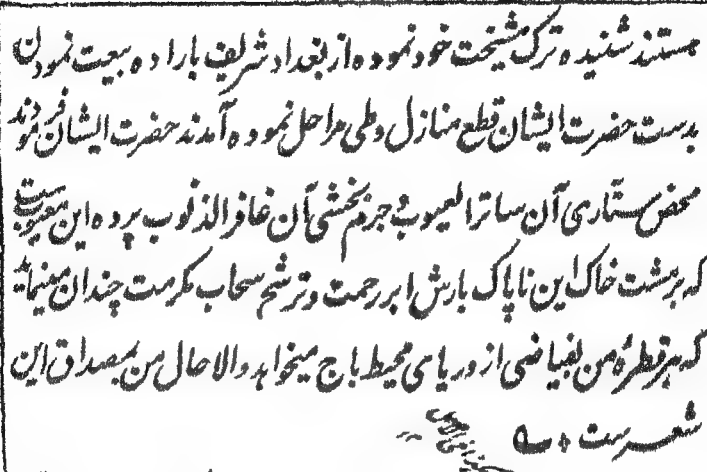 هستند شنیده ترک مشیخت خود نموده از بغداد شریف باراده بیعت نمودن
بدست حضرت ایشان قطع منازل وطی مراحل نموده آمدند حضرت ایشان فرمودند
محض ستّاری آن ساتر العیوب و جرم بخشی آن غافر الذنوب پرده این معیوب ست
که بر مشت خاک این ناپاک بارش ابر رحمت و ترشح سحاب مکرمت چندان مینماید
که هر قطرۀ من بفیاضی از دریای محیط باج میخواهد والا حال من بمصداق این
شعر ست ه